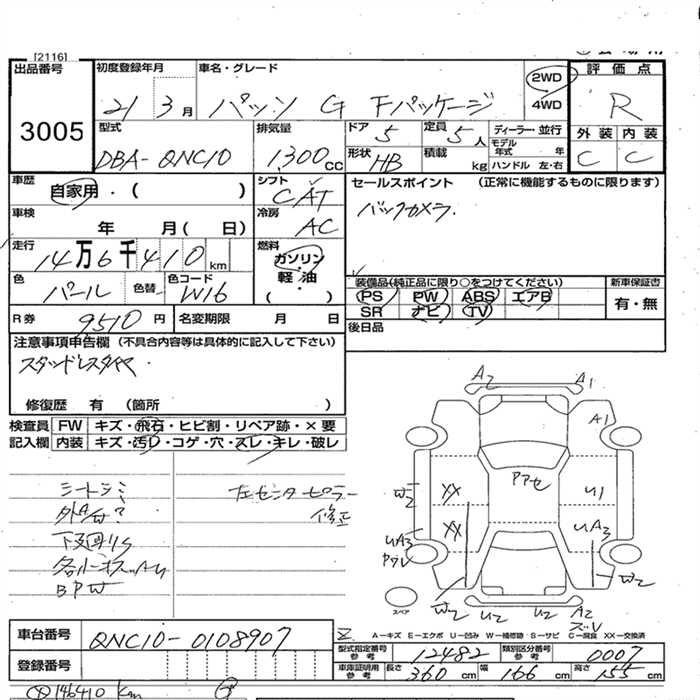 [2116]
出品番号
3005
初度登録年月
21 3月
車名・グレード
パッソ G Fパッケージ
2WD
4WD
評価点
R
外装 内装
C C
型式
DBA-QNC10
排気量
1300cc
ドア 5
定員 5人
形状 HB
積載 kg
ディーラー・並行
モデル年式 年
ハンドル 左・右
車歴
自家用・( )
シフト
CAT
車検
年 月( 日)
冷房
AC
走行
14万6千410km
燃料
ガソリン
軽・油
( )
色
パール
色替
色コード
W16
R券 9510円
名変期限 月 日
セールスポイント (正常に機能するものに限ります)
バックカメラ.
装備品(純正品に限り○をつけてください)
PS PW ABS エアB
SR ナビ TV
新車保証書
有・無
後日品
注意事項申告欄 (不具合内容等は具体的に記入して下さい)
スタッドレスタイヤ
修復歴 有 (箇所 )
検査員 FW キズ・飛石・ヒビ割・リペア跡・×要
記入欄 内装 キズ・汚レ・コゲ・穴・スレ・キレ・破レ
シートシミ
下廻りS
BPW
左センタピラー
修正
A2 A1
A1
W2
XX
U1
XX
UA3
UA3
W2
W2 U2 U2 A2
スペア
A－キズ E－エクボ U－凹み W－補修跡 S－サビ C－腐食 XX－交換済
車台番号
QNC10-0108907
登録番号
型式指定番号 参考 12482
類別区分番号 参考 0007
車庫証明用 参考 長さ 360cm 幅 166cm 高さ 155cm
146410 km